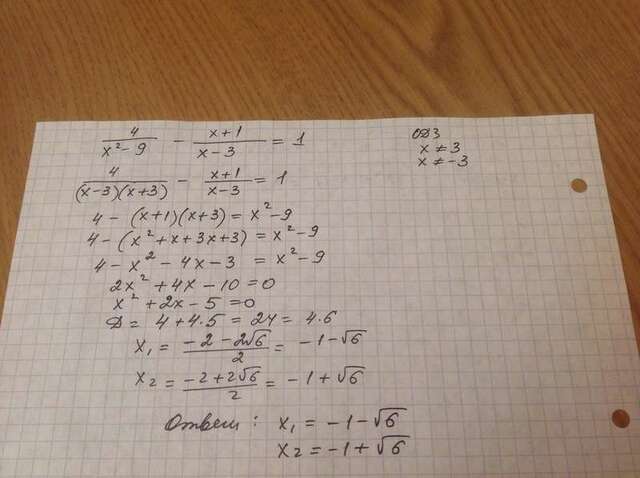 4/(x²-9) - (x+1)/(x-3) = 1
ОДЗ
x ≠ 3
x ≠ -3
4/((x-3)(x+3)) - (x+1)/(x-3) = 1
4 - (x+1)(x+3) = x²-9
4 - (x²+x+3x+3) = x²-9
4 - x² - 4x - 3 = x²-9
2x²+4x-10=0
x²+2x-5=0
D = 4+4·5 = 24 = 4·6
x₁ = (-2-2√6)/2 = -1-√6
x₂ = (-2+2√6)/2 = -1+√6
Ответ: x₁ = -1-√6
x₂ = -1+√6